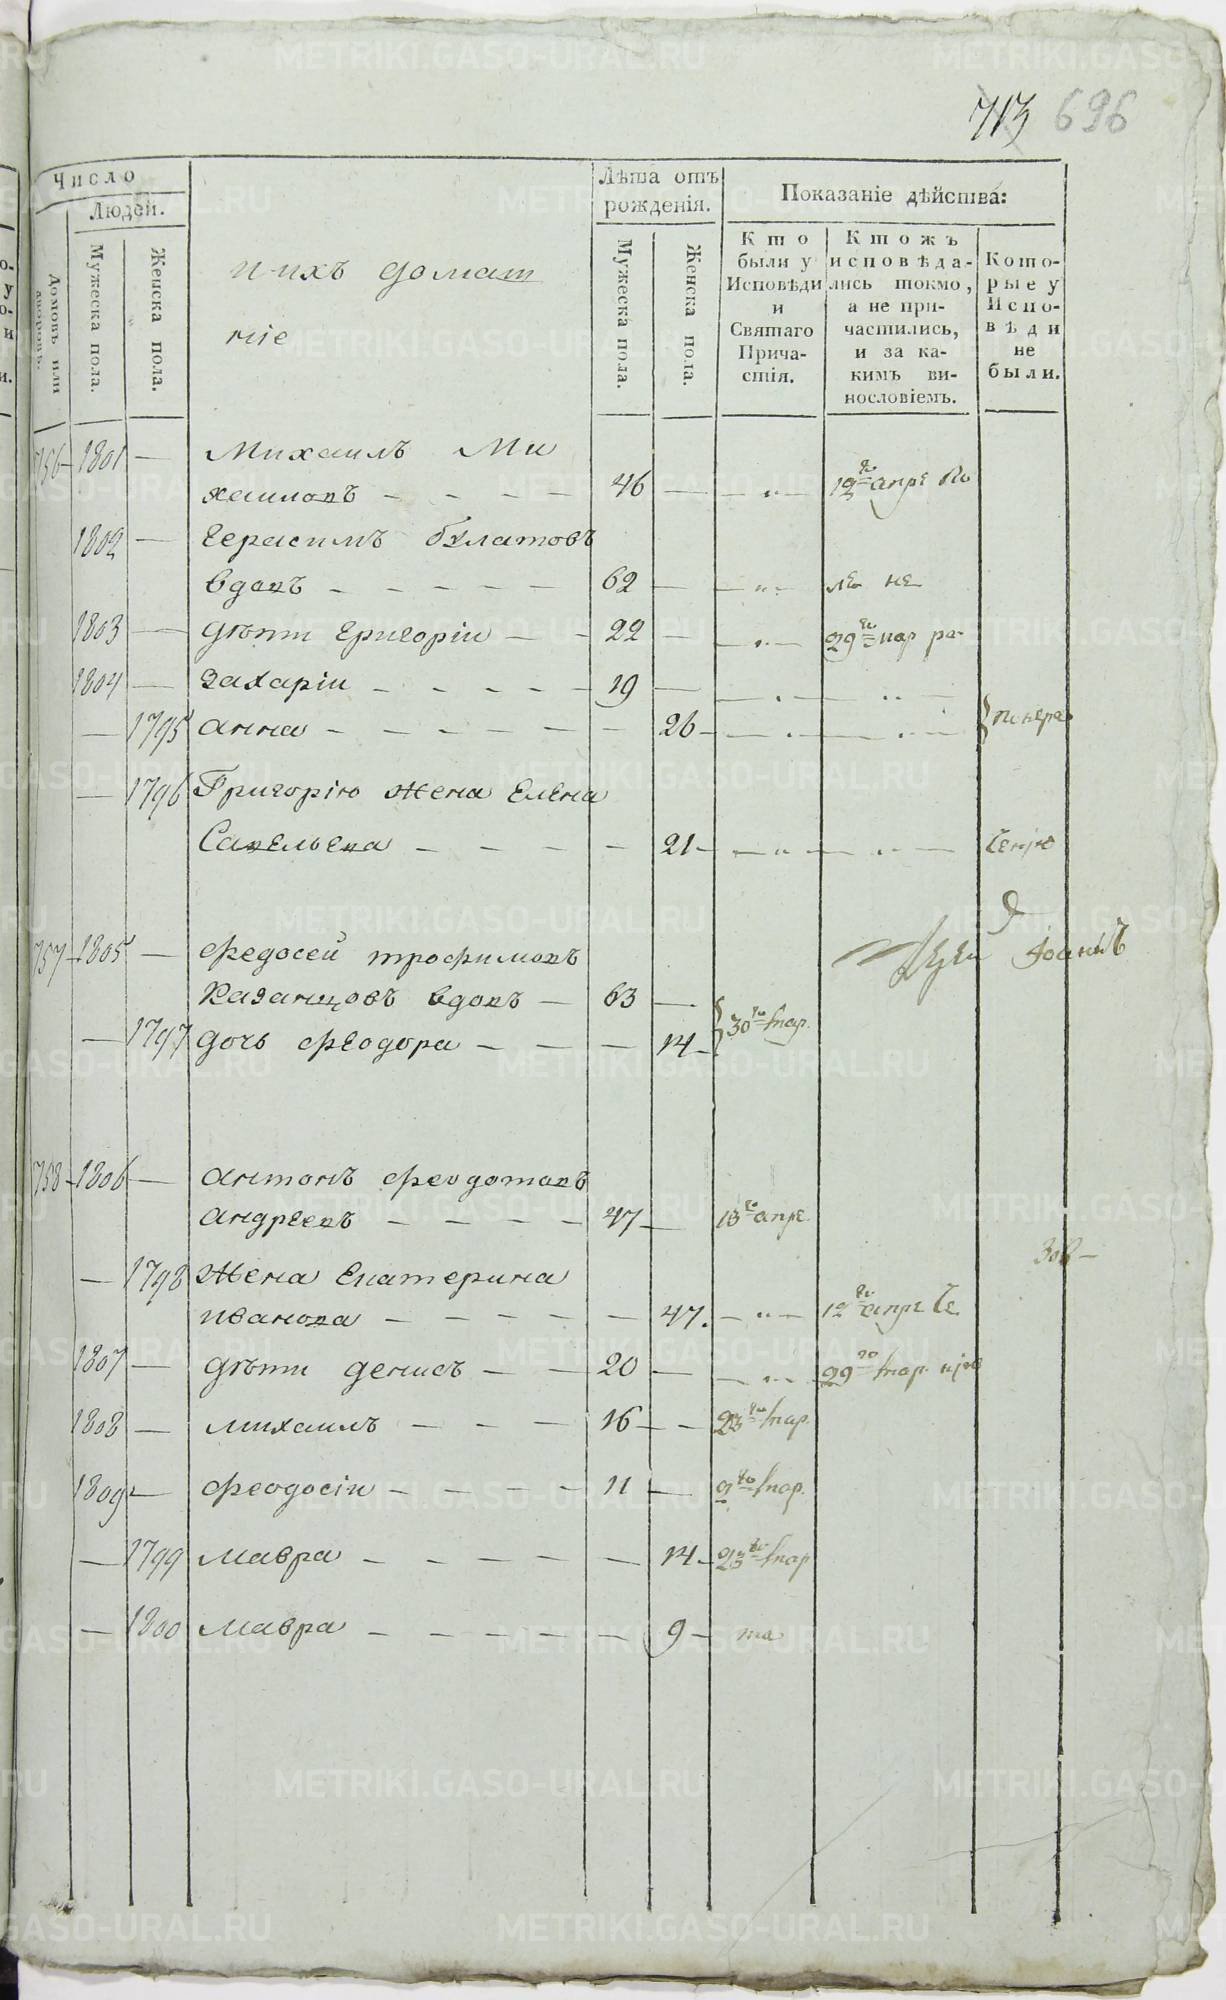 713 696
Число
Людей.
Домовъ или дворовъ.
Мужеска пола.
Женска пола.
и ихъ домаш
ніе
Лѣта отъ рожденія.
Мужеска пола.
Женска пола.
Показаніе дѣйства:
Кто были у Исповѣди и Святаго Причастія.
Ктожъ исповѣдались токмо, а не причастились, и за какимъ винословіемъ.
Которые у Исповѣди не были.
756 1801 — Михаилъ Ми
хаиловъ — 46 — — " — 12го апре по
1802 — Герасимъ Булатовъ
вдовъ — 62 — — " — ле не
1803 — дѣти Григоріи — 22 — — " — 29го мар ра
1804 — Захаріи — 19 —
— 1795 анна — 26
— 1796 Григорію жена Елена
Савельева — 21
757 1805 — Федосей трофимовъ
Казанцовъ вдовъ — 63 —
— 1797 дочь Феодора — 14 30го мар.
Іоаннъ
758 1806 — антонъ Феодотовъ
андреевъ — 47 — 13го апре.
308 —
— 1798 жена Екатерина
иванова — 47. — " — 12го апре
1807 — дѣти денисъ — 20 — — " — 29го мар.
1808 — михаилъ — 16 — 23го мар.
1809 — Феодосіи — 11 — 9го мар.
— 1799 мавра — 14 — 23го мар
— 1800 мавра — 9 — та
METRIKI.GASO-URAL.RU